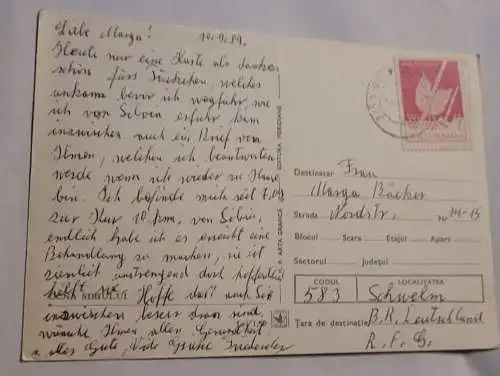 Liebe Marga! 10.9.89.
Heute nur eine Karte als Danke-
schön fürs Päckchen, welches
ankam bevor ich wegfuhr, wie
ich von Silvia erfuhr kam
inzwischen auch ein Brief von
Ihnen, welchen ich beantworten
werde wenn ich wieder zu Hause
bin. Ich befinde mich seit 7.09
zur Kur 10 km, von Sibiu,
endlich habe ich es erreicht eine
Behandlung zu machen, sie ist
ziemlich anstrengend doch hoffentlich
hilft sie. Hoffe daß auch Sie
inzwischen besser dran sind,
wünsche Ihnen allen Gesundheit
u. alles Gute, Viele Grüße
EDITURA MERIDIANE
ARTA GRAFICĂ
Destinatar Frau
Marga Bäcker
Strada Nordstr. Nr.
Blocul Scara Etajul Apart.
Sectorul Județul
CODUL LOCALITATEA
583 Schwelm
Țara de destinație B.R. Deutschland
R.F.G.